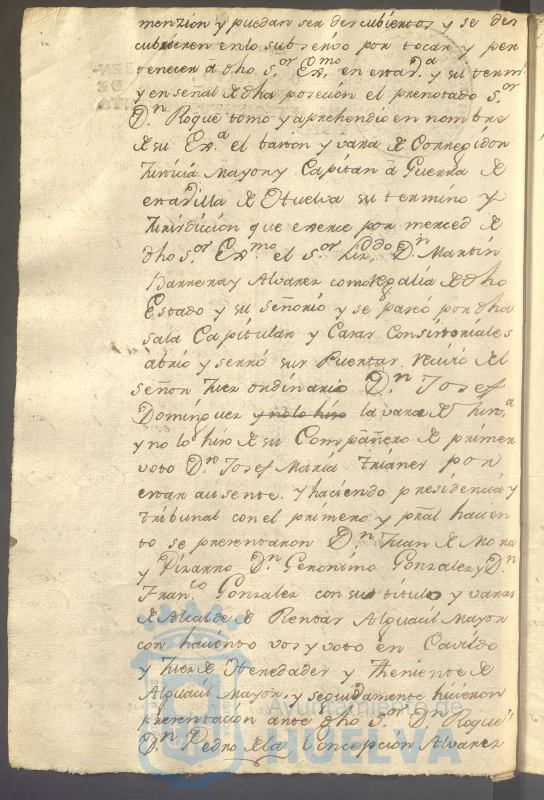 menzion y puedan ser descubiertos y se des
cubrieren en lo subsesivo por tocar y per
tenecer a dho s.or Ex.mo en esta v.a y su term
y en señal de dha posecion el prenotado s.or
D.n Roque tomo y aprehendio en nombre
de su Ex.a el baston y vara de Corregidor
Justicia Mayor y Capitan a Guerra de
esta Villa de Huelva su termino y
Jurisdicion que exerce por merced de
dho s.or Ex.mo el s.or Liz.do D.n Martin
Barrera y Alvarez como regalia de dho
Estado y su señorio y se paseó por dha
sala Capitular y Casas Consistoriales
abrio y serró sus Puertas. recivio del
señor Juez ordinario D.n Josef
Dominguez y no lo hizo la vara de Just.a
y no lo hizo de su Compañero de primer
voto D.n Josef Maria Trianes por
estar ausente. y haciendo presidencia y
tribunal con el primero y pral hacien
to se presentaron D.n Juan de Mora
y Pizarro D.n Geronimo Gonzalez y D.n
Fran.co Gonzalez con sus titulo y varas
de Alcalde de Rentas Alguacil Mayor
con haciento voz y voto en Cavildo
y Juez de Heredades y Theniente de
Alguacil Mayor, y seguidamente hicieron
presentacion ante dho s.or D.n Roque
D.n Pedro de la Concepcion Alvarez
Ayuntamiento de
HUELVA